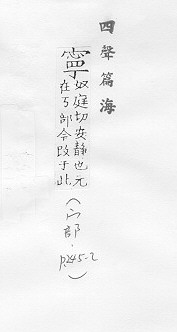 四聲篇海
寧奴庭切安靜也元
在丂部今改于此
(宀部.
p.245-2
)